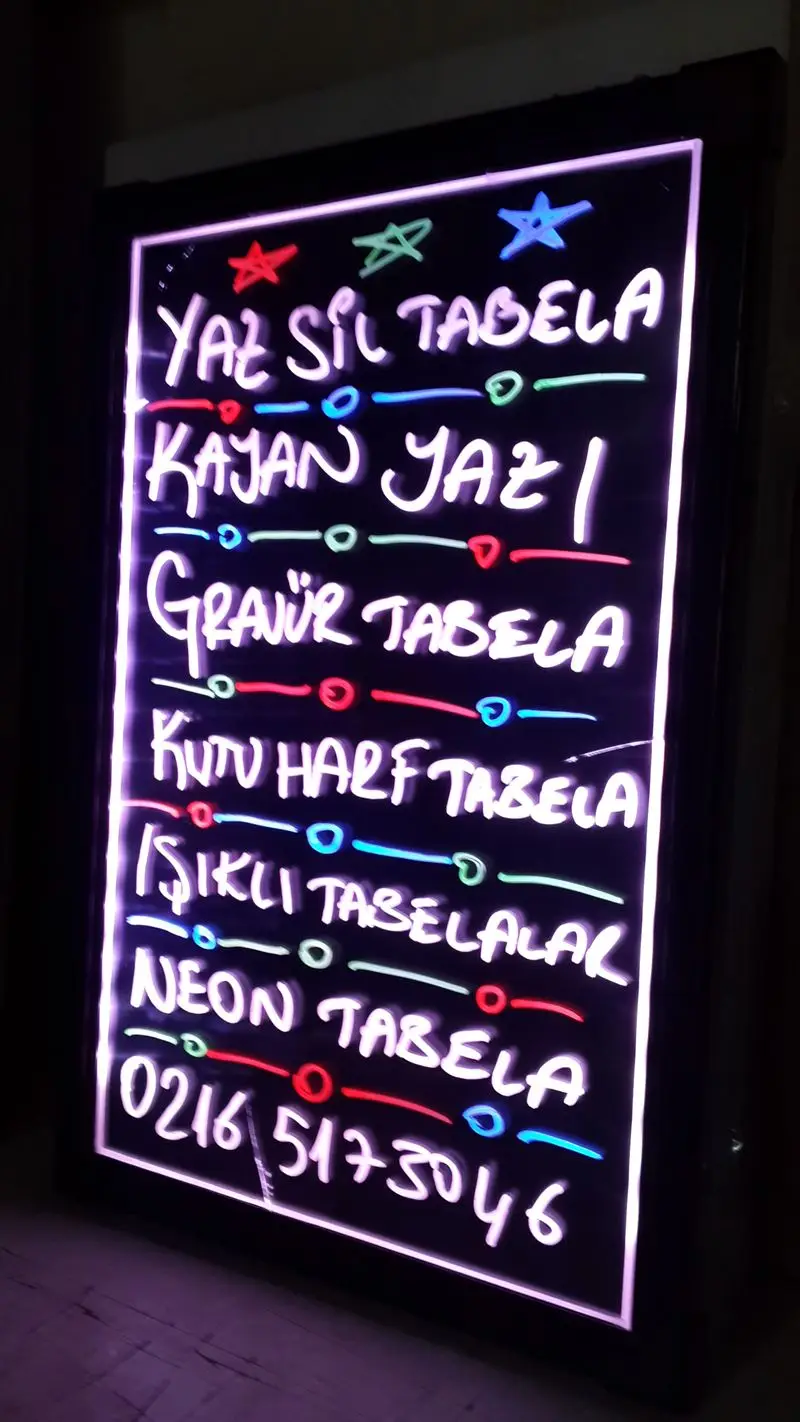 YAZ SİL TABELA
KAYAN YAZI
GRAVÜR TABELA
KUTU HARF TABELA
IŞIKLI TABELALAR
NEON TABELA
0216 5173046